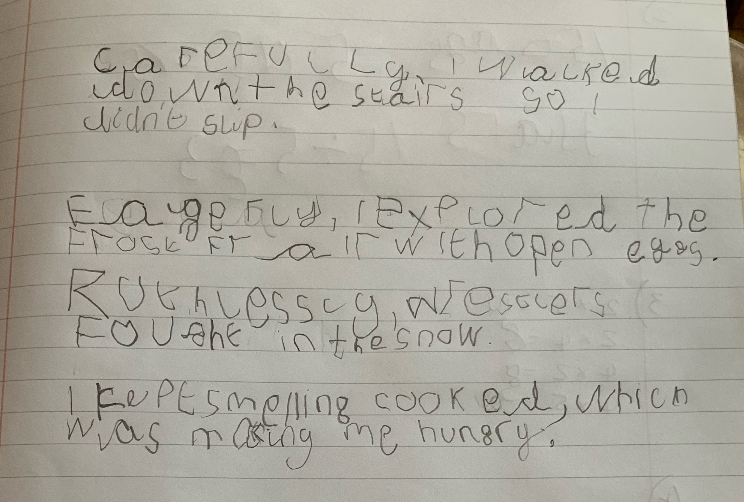 Carefully, I walked
down the stairs so I
didn't slip.
Eagerly, I explored the
Frost Fr air with open eyes.
Ruthlessly, wrestlers
Fought in the snow.
I kept smelling cooked, which
was making me hungry.